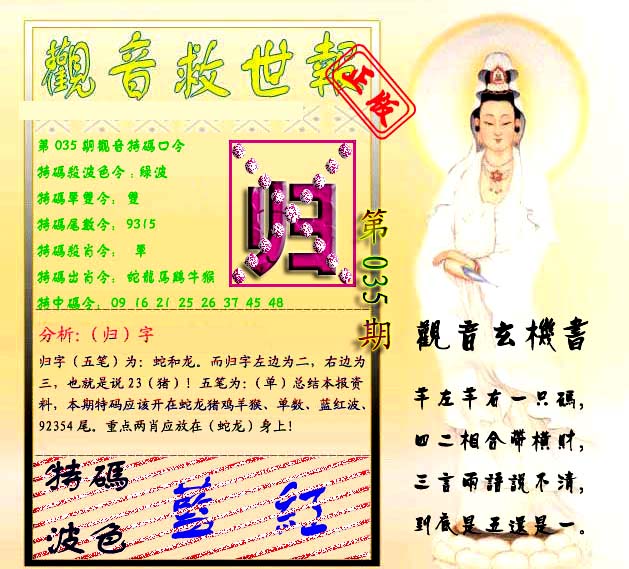 觀音救世報
正版
第035期觀音特碼口令
特碼殺波色令:綠波
特碼單雙令: 雙
特碼尾數令: 9315
特碼殺肖令: 單
特碼出肖令: 蛇龍馬鷄牛猴
特中碼令: 09 16 21 25 26 37 45 48
归
第035期
分析:(归)字
归字(五笔)为:蛇和龙。而归字左边为二,右边为
三,也就是说23(猪)!五笔为:(单)总结本报资
料,本期特码应该开在蛇龙猪鸡羊猴、单数、蓝红波、
92354尾。重点两肖应放在(蛇龙)身上!
特碼
波色
藍 紅
觀音玄機書
羊左羊右一只碼,
四二相合帶橫財,
三言兩語説不清,
到底是五還是一。